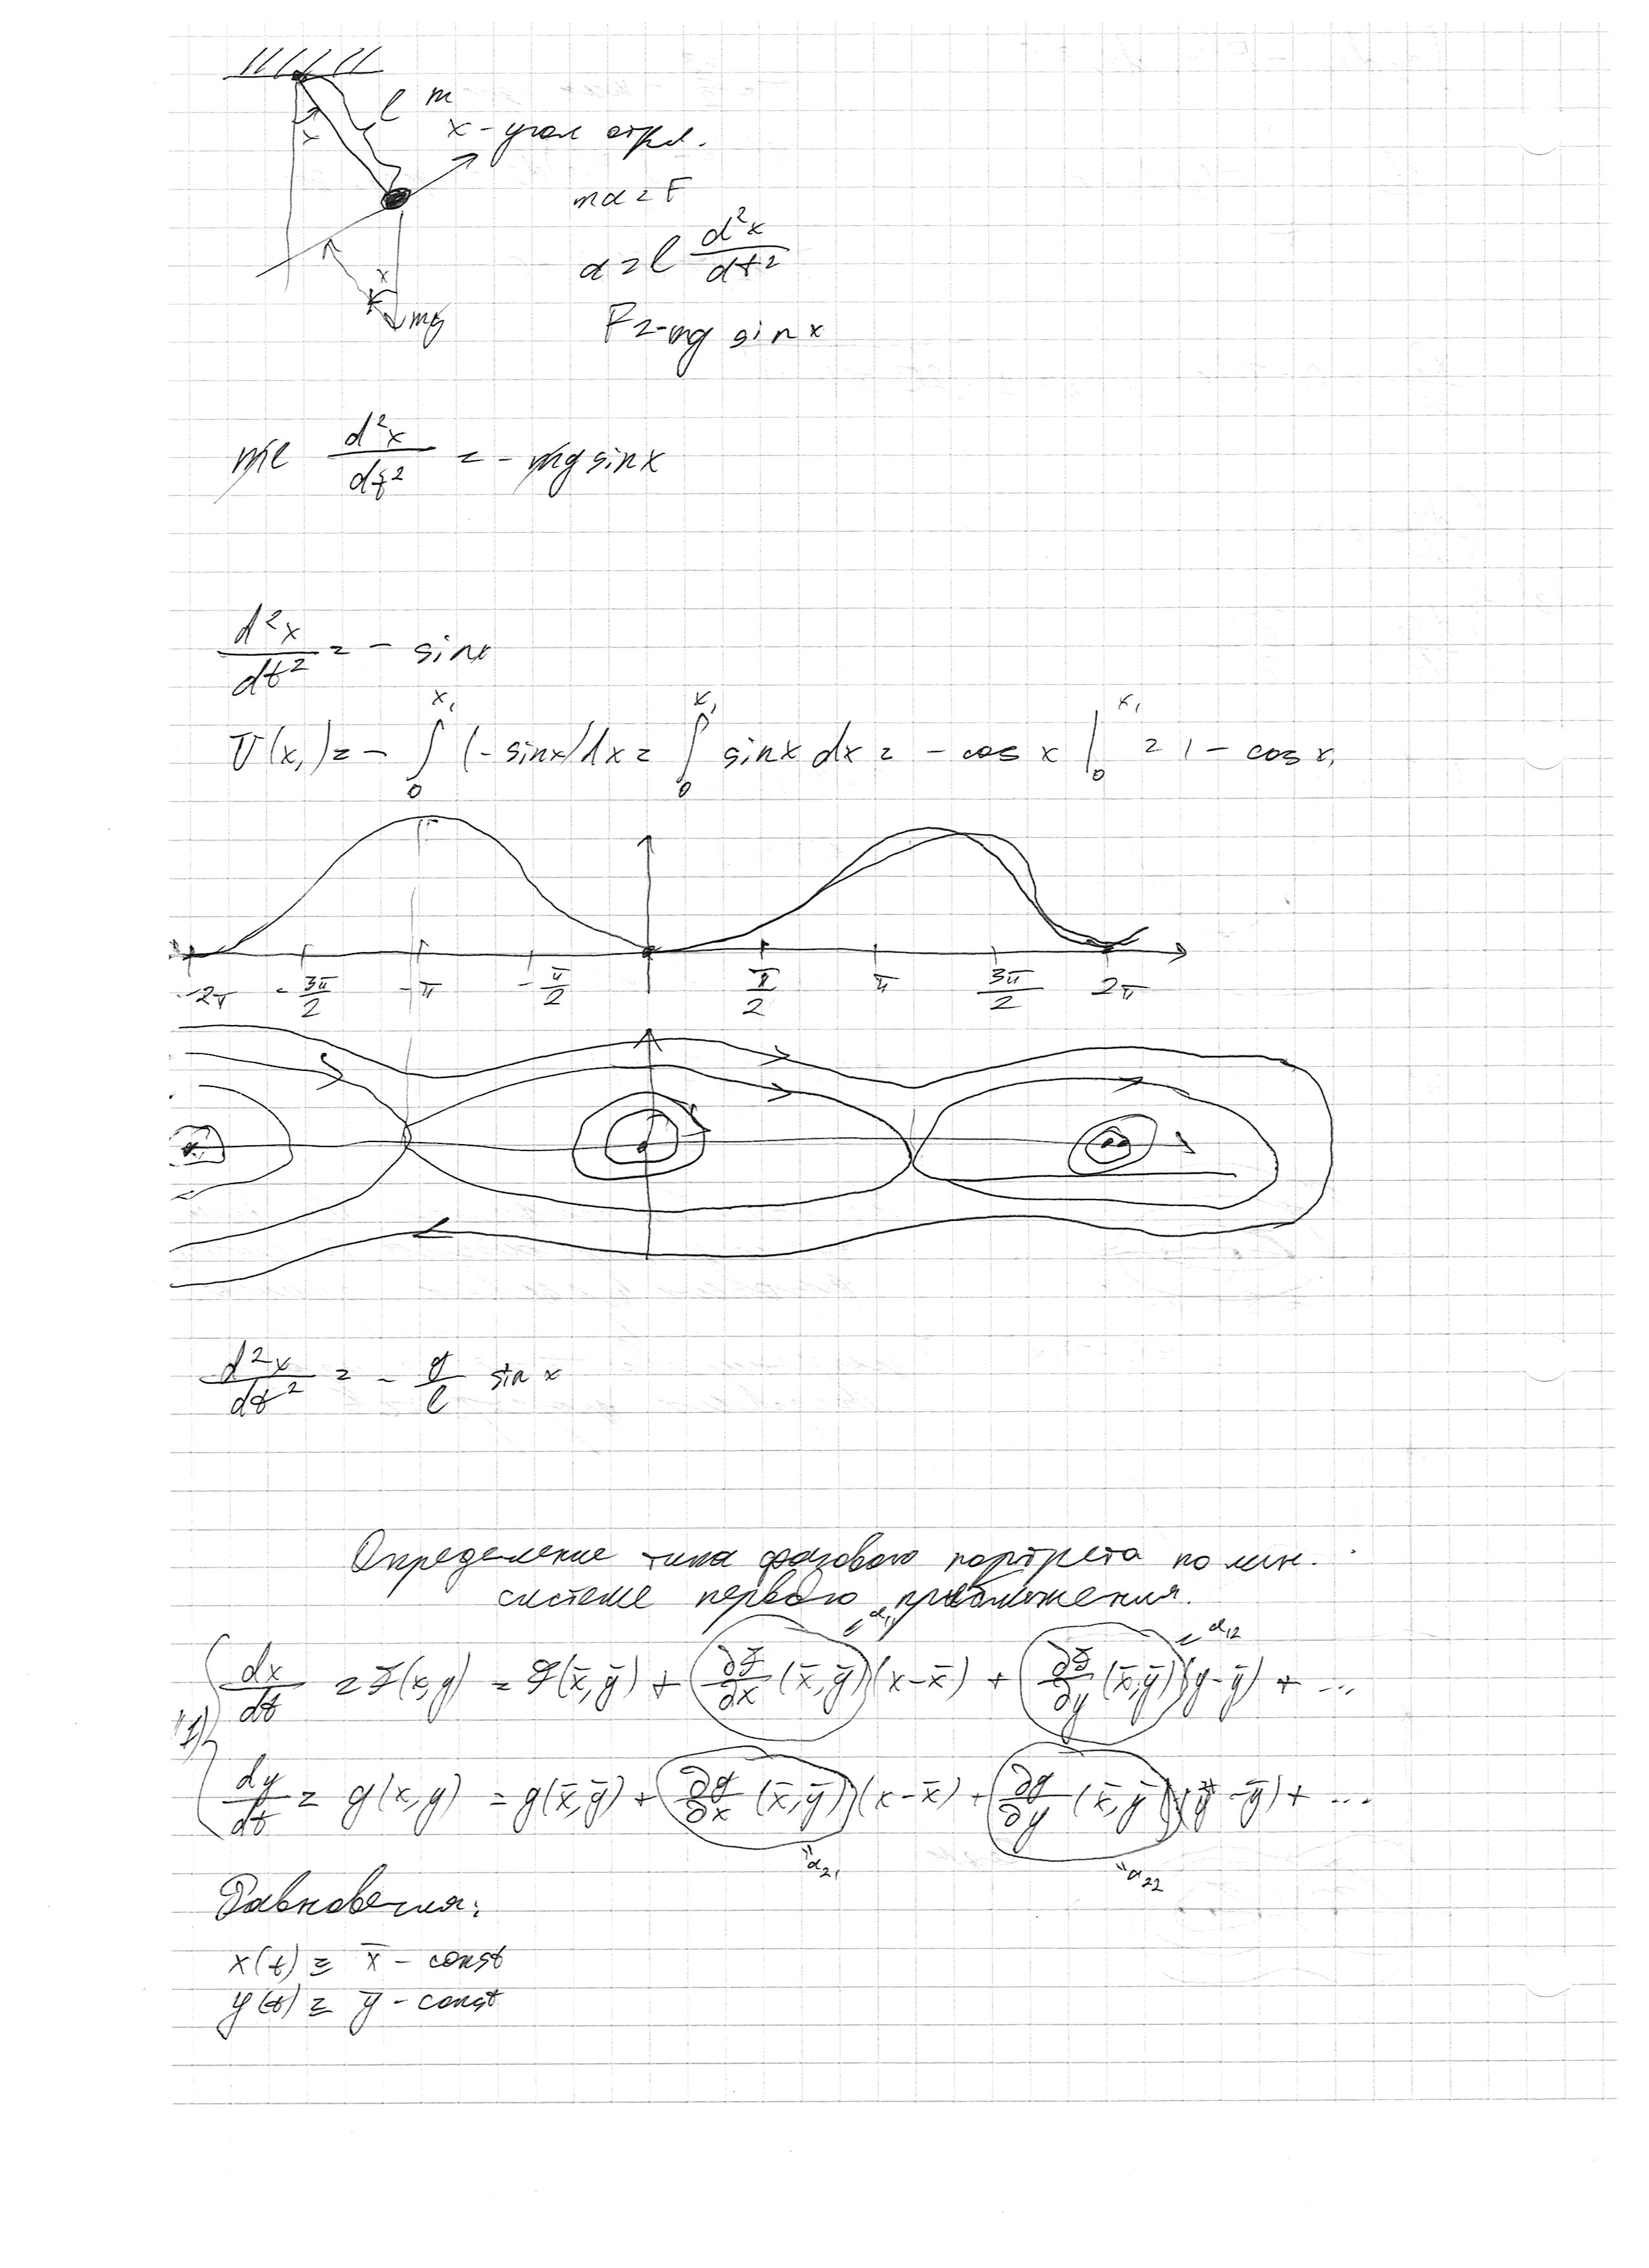 l m
x
x - угол откл.
ma = F
a = l d²x/dt²
x
mg
F = -mg sin x
ml d²x/dt² = - mg sin x
d²x/dt² = - sin x
U(x₁) = - ∫₀^x₁ (- sin x) dx = ∫₀^x₁ sin x dx = - cos x |₀^x₁ = 1 - cos x₁
-2π -3π/2 -π -π/2 π/2 π 3π/2 2π
d²x/dt² = - g/l sin x
Определение типа фазового портрета по лин.
системе первого приближения.
= a₁₁ = a₁₂
dx/dt = f(x,y) = f(x̄,ȳ) + ∂f/∂x (x̄,ȳ)(x-x̄) + ∂f/∂y (x̄,ȳ)(y-ȳ) + ...
(1)
dy/dt = g(x,y) = g(x̄,ȳ) + ∂g/∂x (x̄,ȳ)(x-x̄) + ∂g/∂y (x̄,ȳ)(y-ȳ) + ...
" a₂₁ " a₂₂
Равновесия:
x(t) ≡ x̄ - const
y(t) ≡ ȳ - const